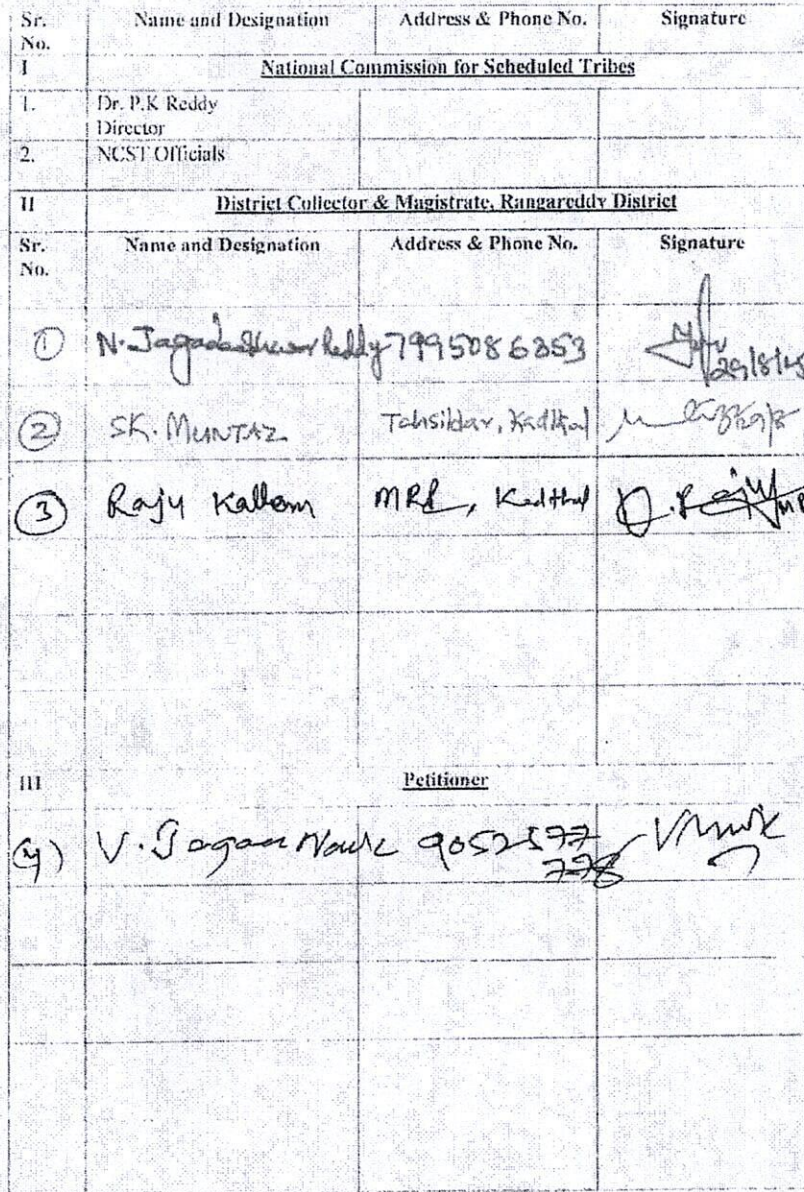 Sr. No. Name and Designation Address & Phone No. Signature
I National Commission for Scheduled Tribes
1. Dr. P.K Reddy
Director
2. NCST Officials
II District Collector & Magistrate, Rangareddy District
Sr. No. Name and Designation Address & Phone No. Signature
1 N. Jagadeeshwar Reddy 7995086353
2 SK. MUNTAZ Tahsildar, Kadthal
3 Raju Kallem Kadthal
III Petitioner
4) V. Jagan Naik 9052577
778